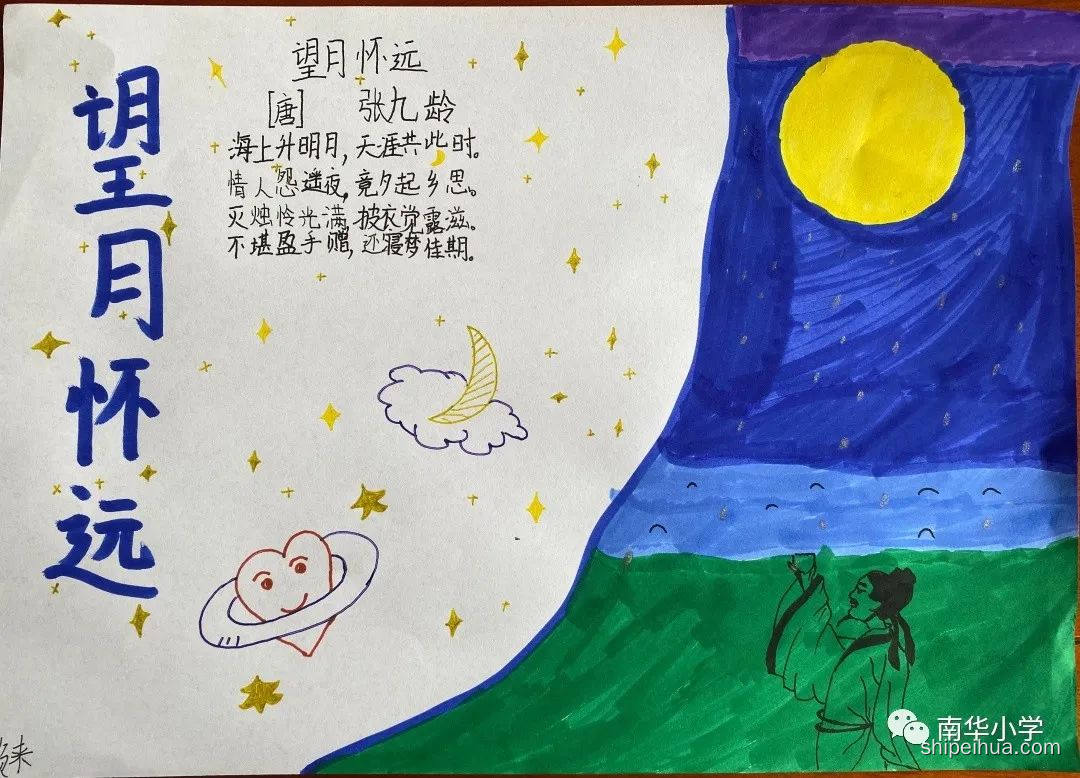 望月怀远
望月怀远
[唐] 张九龄
海上升明月,天涯共此时。
情人怨遥夜,竟夕起乡思。
灭烛怜光满,披衣觉露滋。
不堪盈手赠,还寝梦佳期。
南华小学
shipeihua.com